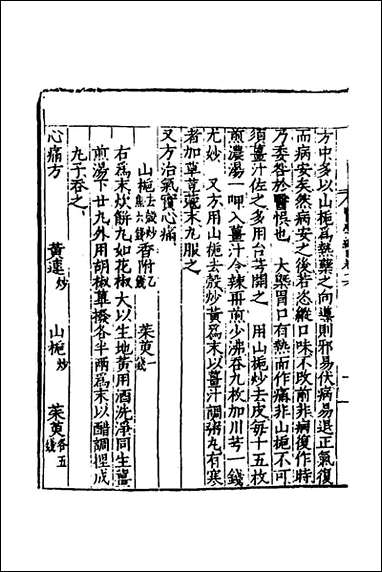 方中多以山梔爲熱藥之向導則邪易伏病易退正氣復
而病安矣然病安之後若恣縱口味不改前非病復作時
乃委咎於醫悞也　大槩胃口有熱而作痛非山梔不可
須薑汁佐之多用台芎開之　用山梔炒去皮每十五枚
煎濃湯一呷入薑汁令辣再煎少沸吞九枚加川芎一錢
尤妙　又方用山梔去殼炒黃爲末以薑汁調粥丸有寒
者加草荳蔻末丸服之
又方治氣實心痛
山梔去殼炒焦六錢　香附一錢　茱萸一錢
右爲末炊餅丸如花椒大以生地黃用酒洗淨同生薑
煎湯下廿九外用胡椒蓽撥各半兩爲末以醋調揑成
丸子吞之
心痛方　黃連炒　山梔炒　茱萸各五錢